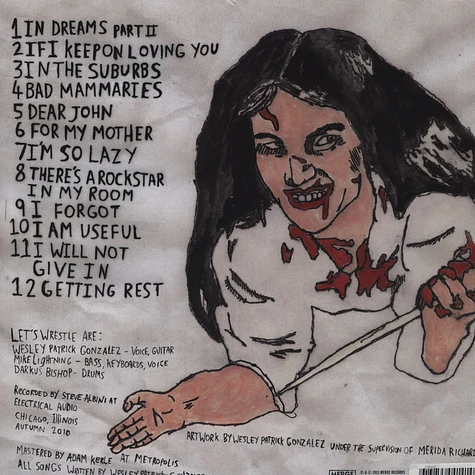 1 IN DREAMS PART II
2 IF I KEEP ON LOVING YOU
3 IN THE SUBURBS
4 BAD MAMMARIES
5 DEAR JOHN
6 FOR MY MOTHER
7 I'M SO LAZY
8 THERE'S A ROCKSTAR
IN MY ROOM
9 I FORGOT
10 I AM USEFUL
11 I WILL NOT
GIVE IN
12 GETTING REST
LET'S WRESTLE ARE:
WESLEY PATRICK GONZALEZ - VOICE, GUITAR
MIKE LIGHTNING - BASS, KEYBOARDS, VOICE
DARKUS BISHOP - DRUMS
RECORDED BY STEVE ALBINI AT
ELECTRICAL AUDIO
CHICAGO, ILLINOIS
AUTUMN 2010
MASTERED BY ADAM AT METROPOLIS
ALL SONGS WOTTEN BY WESLEY PATRICK
ARTWORK BY WESLEY PATRICK GONZALEZ UNDER THE SUPERVISION OF MERIDA
MERGE ℗ & © 2011 MERGE RECORDS